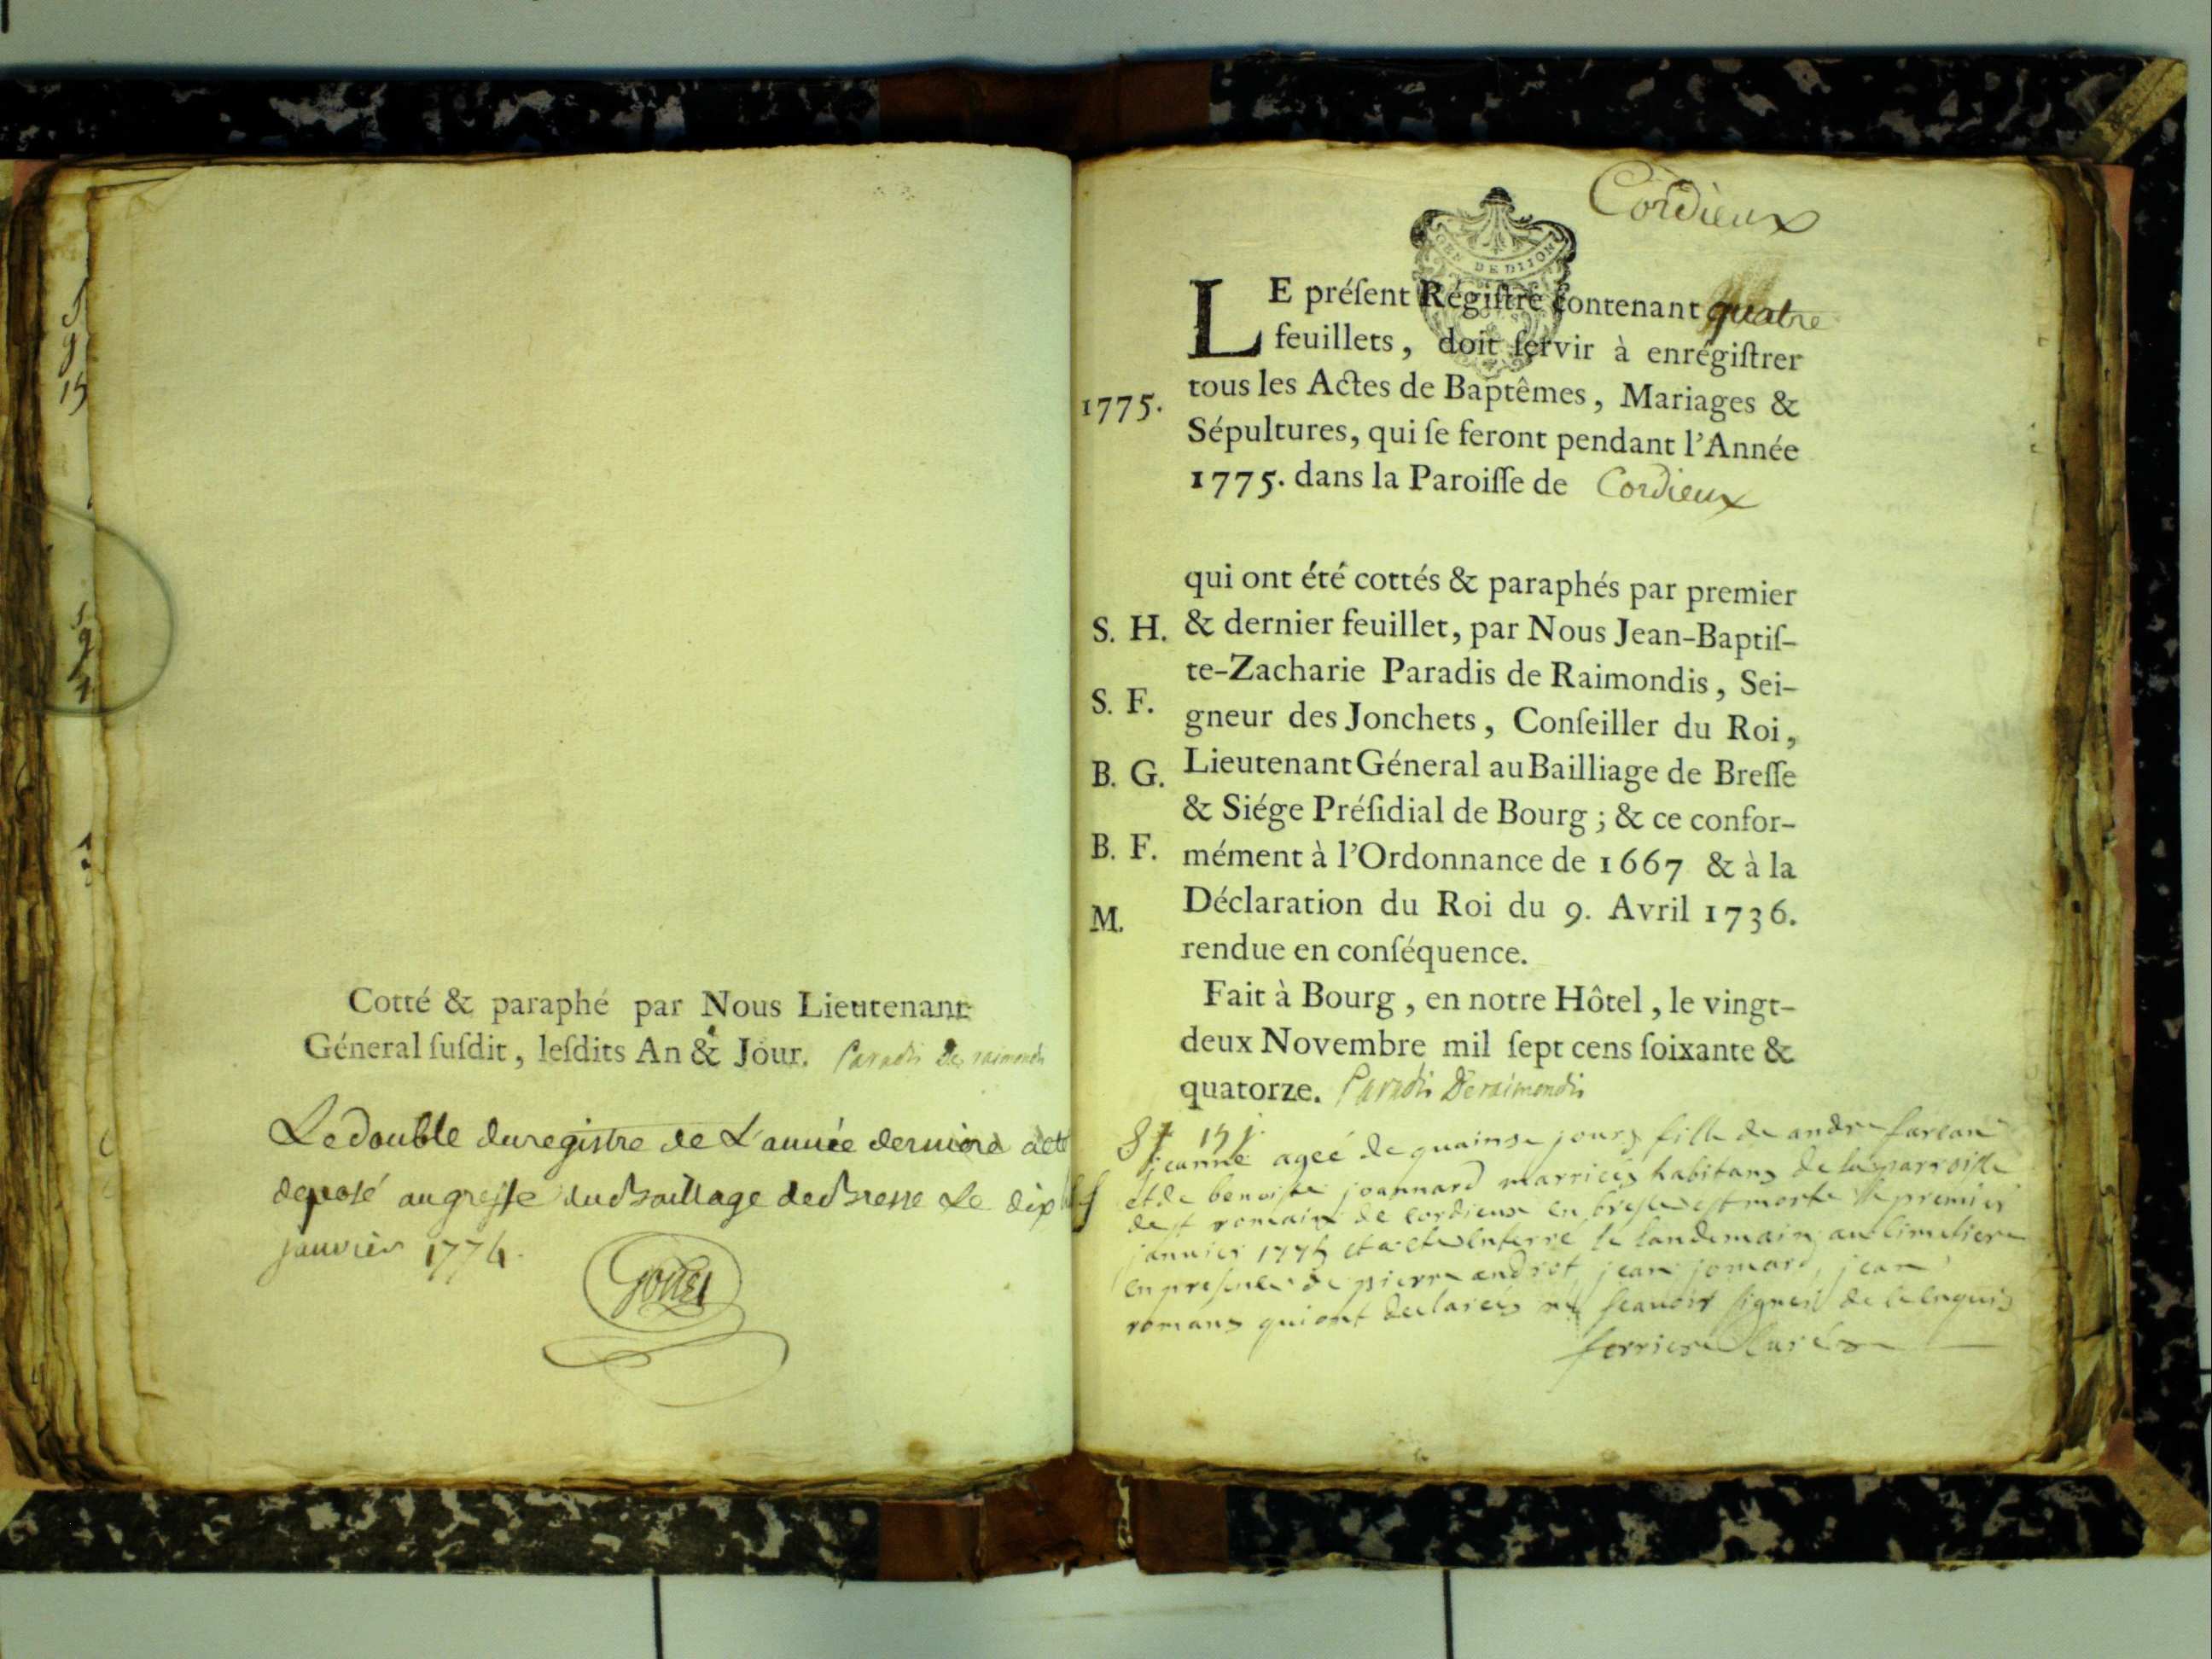 Cotté & paraphé par Nous Lieutenant
Géneral ſuſdit, leſdits An & Jour. Paradis De raimondis
Le double du registre de L'année derniere a eté
deposé au greffe du Baillage de Bresse Le dix
janvier 1774.
Cordieux
GEN DE DIION
LE préſent Régiſtre contenant quatre
feuillets, doit ſervir à enrégiſtrer
tous les Actes de Baptêmes, Mariages &
1775.
Sépultures, qui ſe feront pendant l'Année
1775. dans la Paroiſſe de Cordieux
qui ont été cottés & paraphés par premier
S. H. & dernier feuillet, par Nous Jean-Baptiſ-
te-Zacharie Paradis de Raimondis, Sei-
S. F.
gneur des Jonchets, Conſeiller du Roi,
B. G. Lieutenant Géneral au Bailliage de Breſſe
& Siége Préſidial de Bourg; & ce confor-
B. F. mément à l'Ordonnance de 1667 & à la
M. Déclaration du Roi du 9. Avril 1736.
rendue en conſéquence.
Fait à Bourg, en notre Hôtel, le vingt-
deux Novembre mil ſept cens ſoixante &
quatorze. Paradis De raimondis
jeanne ageé de quainse jours fille de andre
et de benoiste joannard marriées habitans de la parroisse
de st romain de cordieux en bresse est morte le premier
janvier 1775 et a eté enterré le landemain au cimetiere
en presence de pierre andret, jean jomard, jean
romans qui ont declarées ne scauoir signer de ce enquis
ferriere Curé